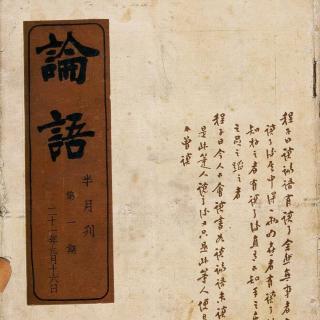 程子曰讀論語有讀了全然無事者有
讀了後其中得一兩句喜者有讀了
知好之者有讀了後直有不知手之
足之蹈之者
程子曰今人不會讀書如讀論語未讀
是此等人讀了後又只是此等人便是
不曾讀
論語
半月刊
第一期
二十一年九月十六日